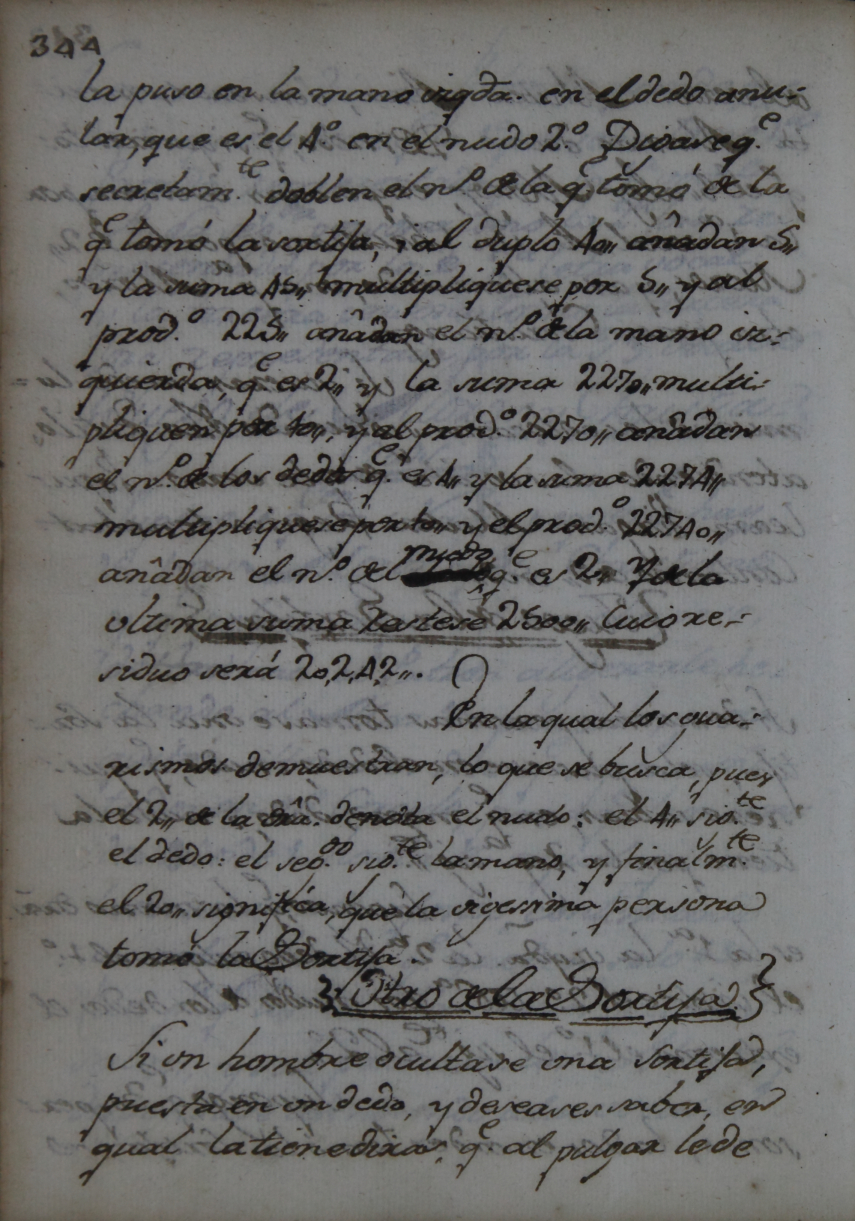 344
la puso en la mano izqda. en el dedo anu-
lar, que es el 4.º en el nudo 2.º Digase q.e
secretam.te doblen el n.º de la q.e tomó de la
q.e tomó la sortija, i al duplo 40,, añadan 5,,
y la suma 45,, multipliquese por 5,, y al
prod.º 225,, añadan el n.º de la mano iz-
quierda, q.e es 2,, y la suma 227,, multi-
pliquen por 10,, y al prod.º 2270,, añadan
el n.º de los dedos q.e es 4,, y la suma 2274,,
multipliquese por 10,, y el prod.º 22740,,
añadan el n.º del nudo q.e es 2,, Y de la
ultima suma Restese 2500,, Cuio re-
siduo será 20,2,4,2,,.
En la qual los gua-
rismos demuestran, lo que se busca, pues
el 2,, de la dra. denota el nudo: el 4,, sig.te
el dedo: el seg.do sig.te la mano, y finalm.te
el 20,, significa, que la vigessima persona
tomó la Sortija.
Otro de la Sortija
Si un hombre ocultase una Sortija,
puesta en un dedo, y deseases saber, en
qual la tiene diras, q.e al pulgar le de